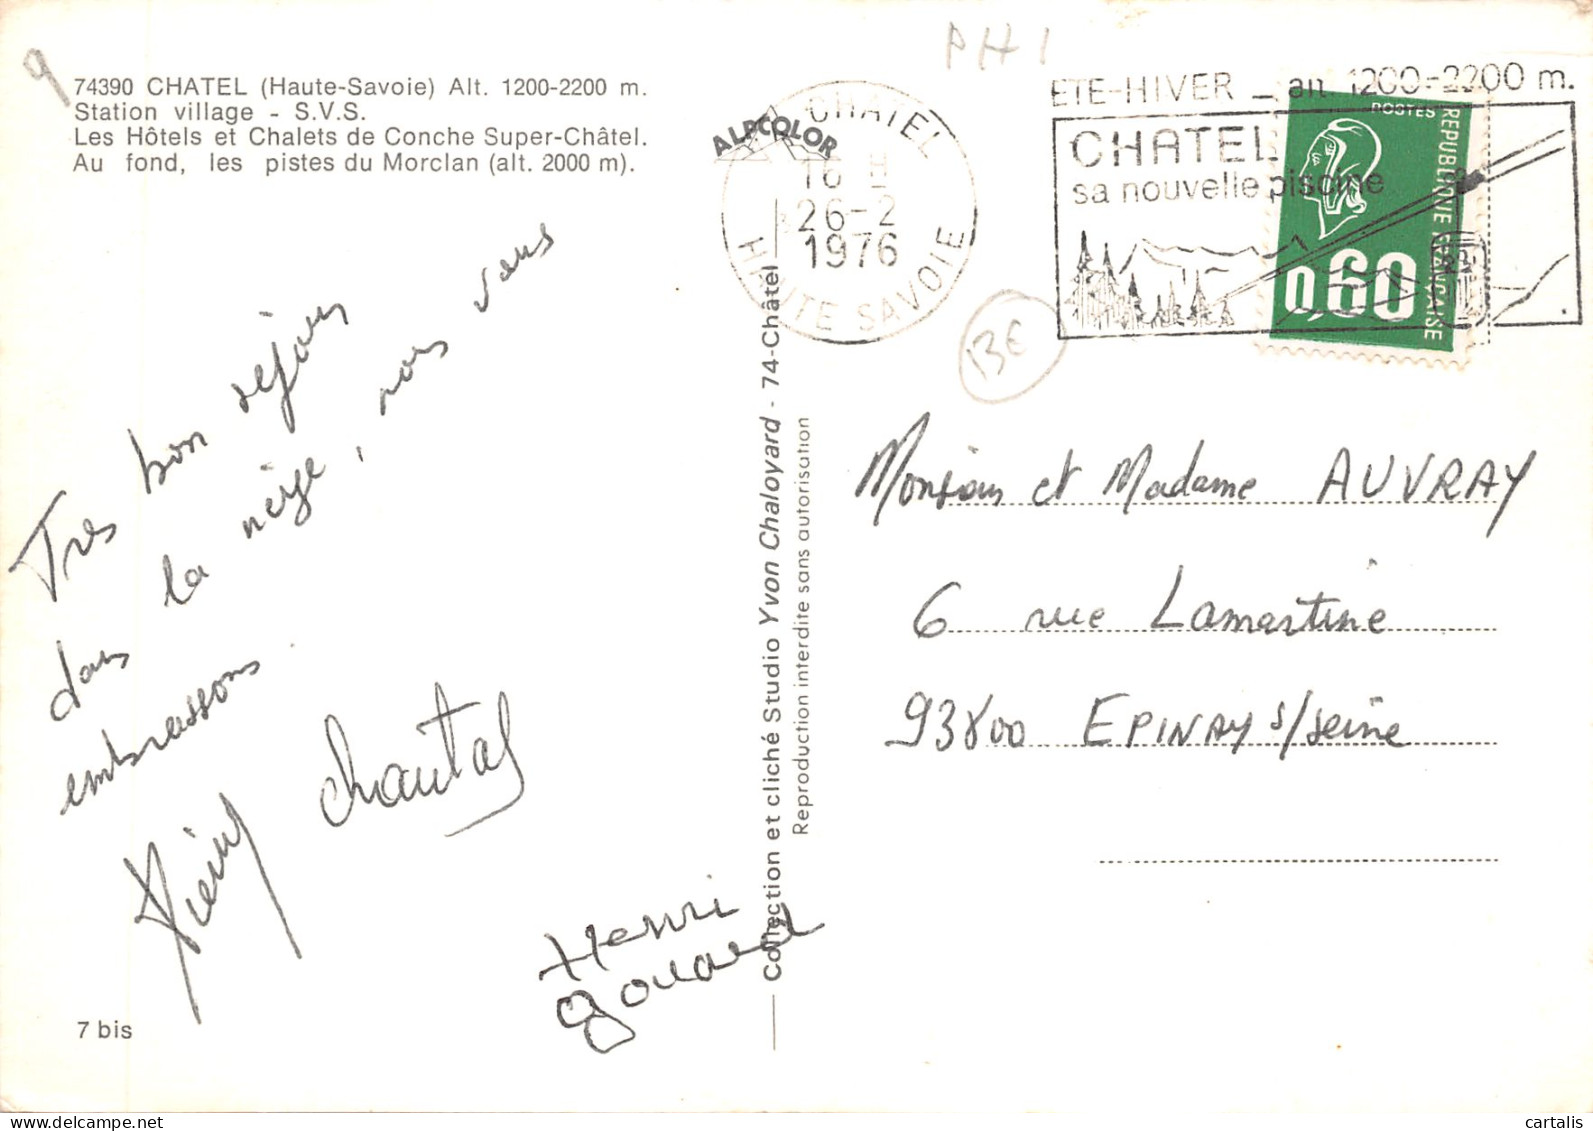 9
74390 CHATEL (Haute-Savoie) Alt. 1200-2200 m.
Station village - S.V.S.
Les Hôtels et Chalets de Conche Super-Châtel.
Au fond, les pistes du Morclan (alt. 2000 m).
Tres bon séjour
dans la neige, nous vous
embrassons.
Chantal
Henri
Gouard
7 bis
ALPCOLOR
Collection et cliché Studio Yvon Chaloyard - 74-Châtel
Reproduction interdite sans autorisation
PH 1
CHATEL
16 H
26-2
1976
HAUTE SAVOIE
ETE-HIVER _ alt 1200-2200 m.
CHATEL
sa nouvelle piscine
POSTES
REPUBLIQUE FRANÇAISE
0,60
Monsieur et Madame AUVRAY
6 rue Lamartine
93800 EPINAY s/seine
cartalis